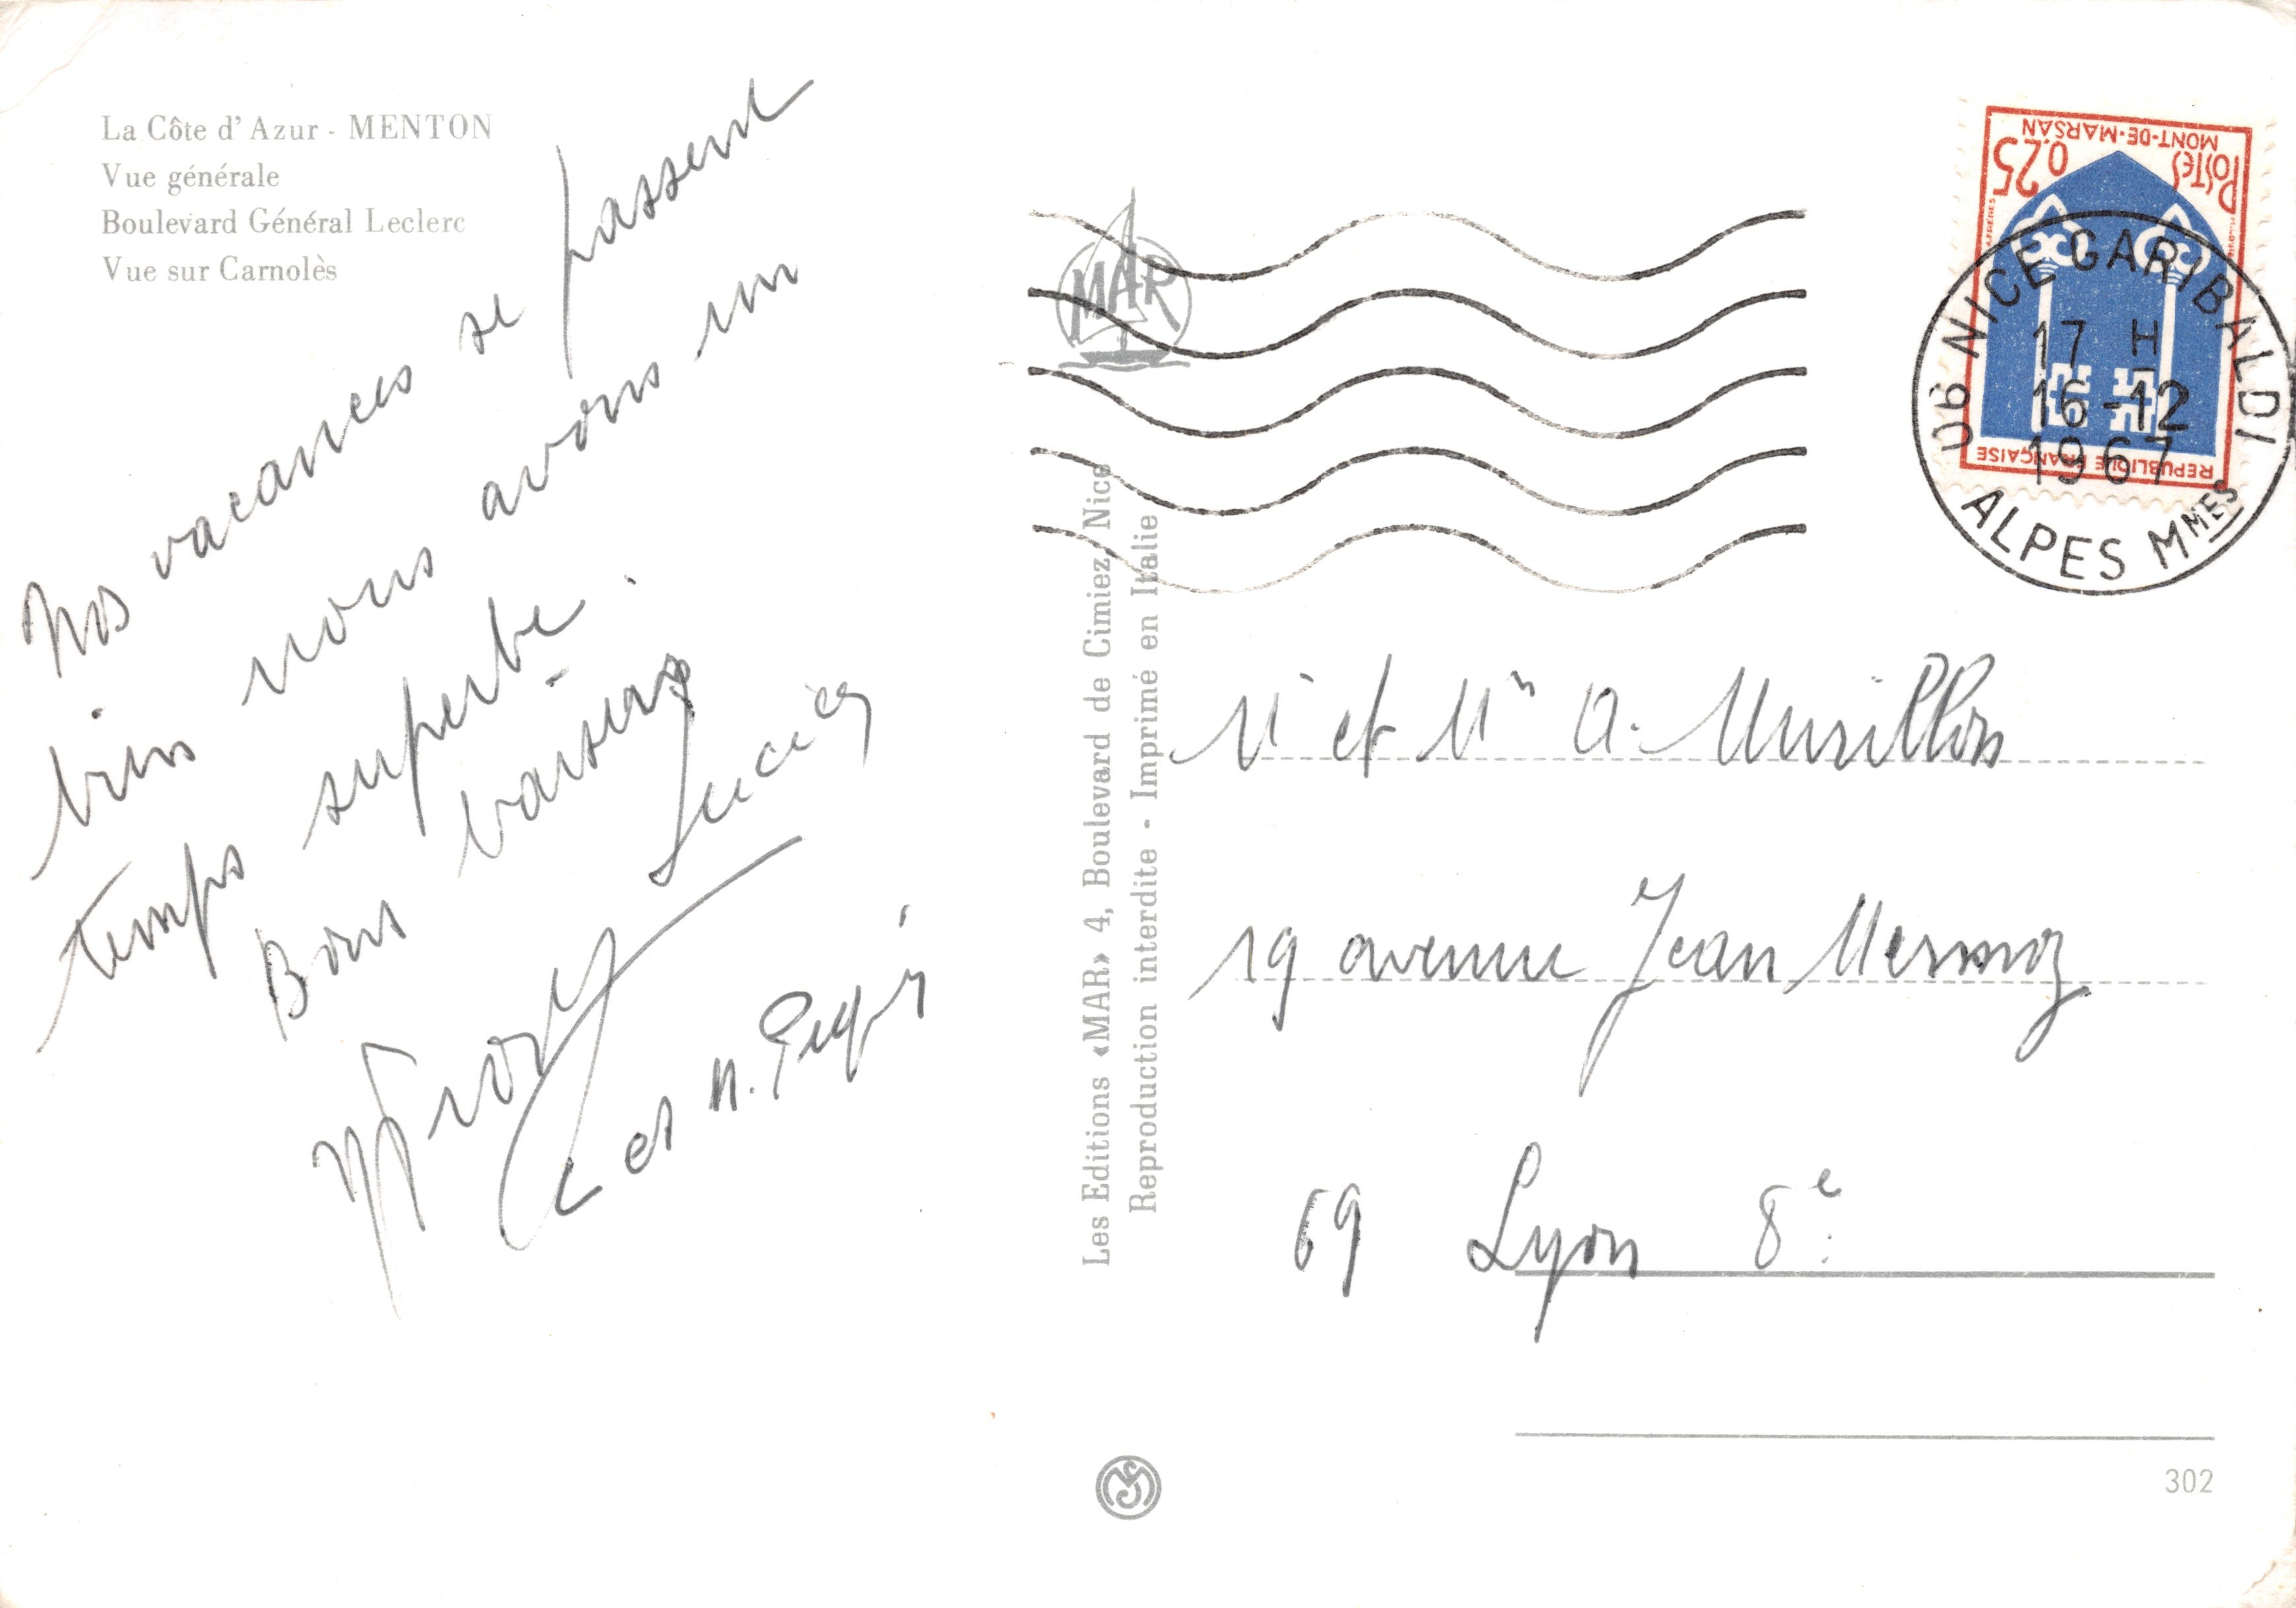 La Côte d'Azur - MENTON
Vue générale
Boulevard Général Leclerc
Vue sur Carnolès
Nos vacances se passent
bien nous avons un
temps superbe.
Bons baisers
Lucien
et M.
MAR
Les Editions «MAR» 4, Boulevard de Cimiez, Nice
Reproduction interdite - Imprimé en Italie
MONT-DE-MARSAN
POSTES
0,25
REPUBLIQUE FRANÇAISE
06 NICE GARIBALDI
17 H
16-12
1967
ALPES MMES
et A.
19 avenue Jean Mermoz
69 Lyon 8e
302